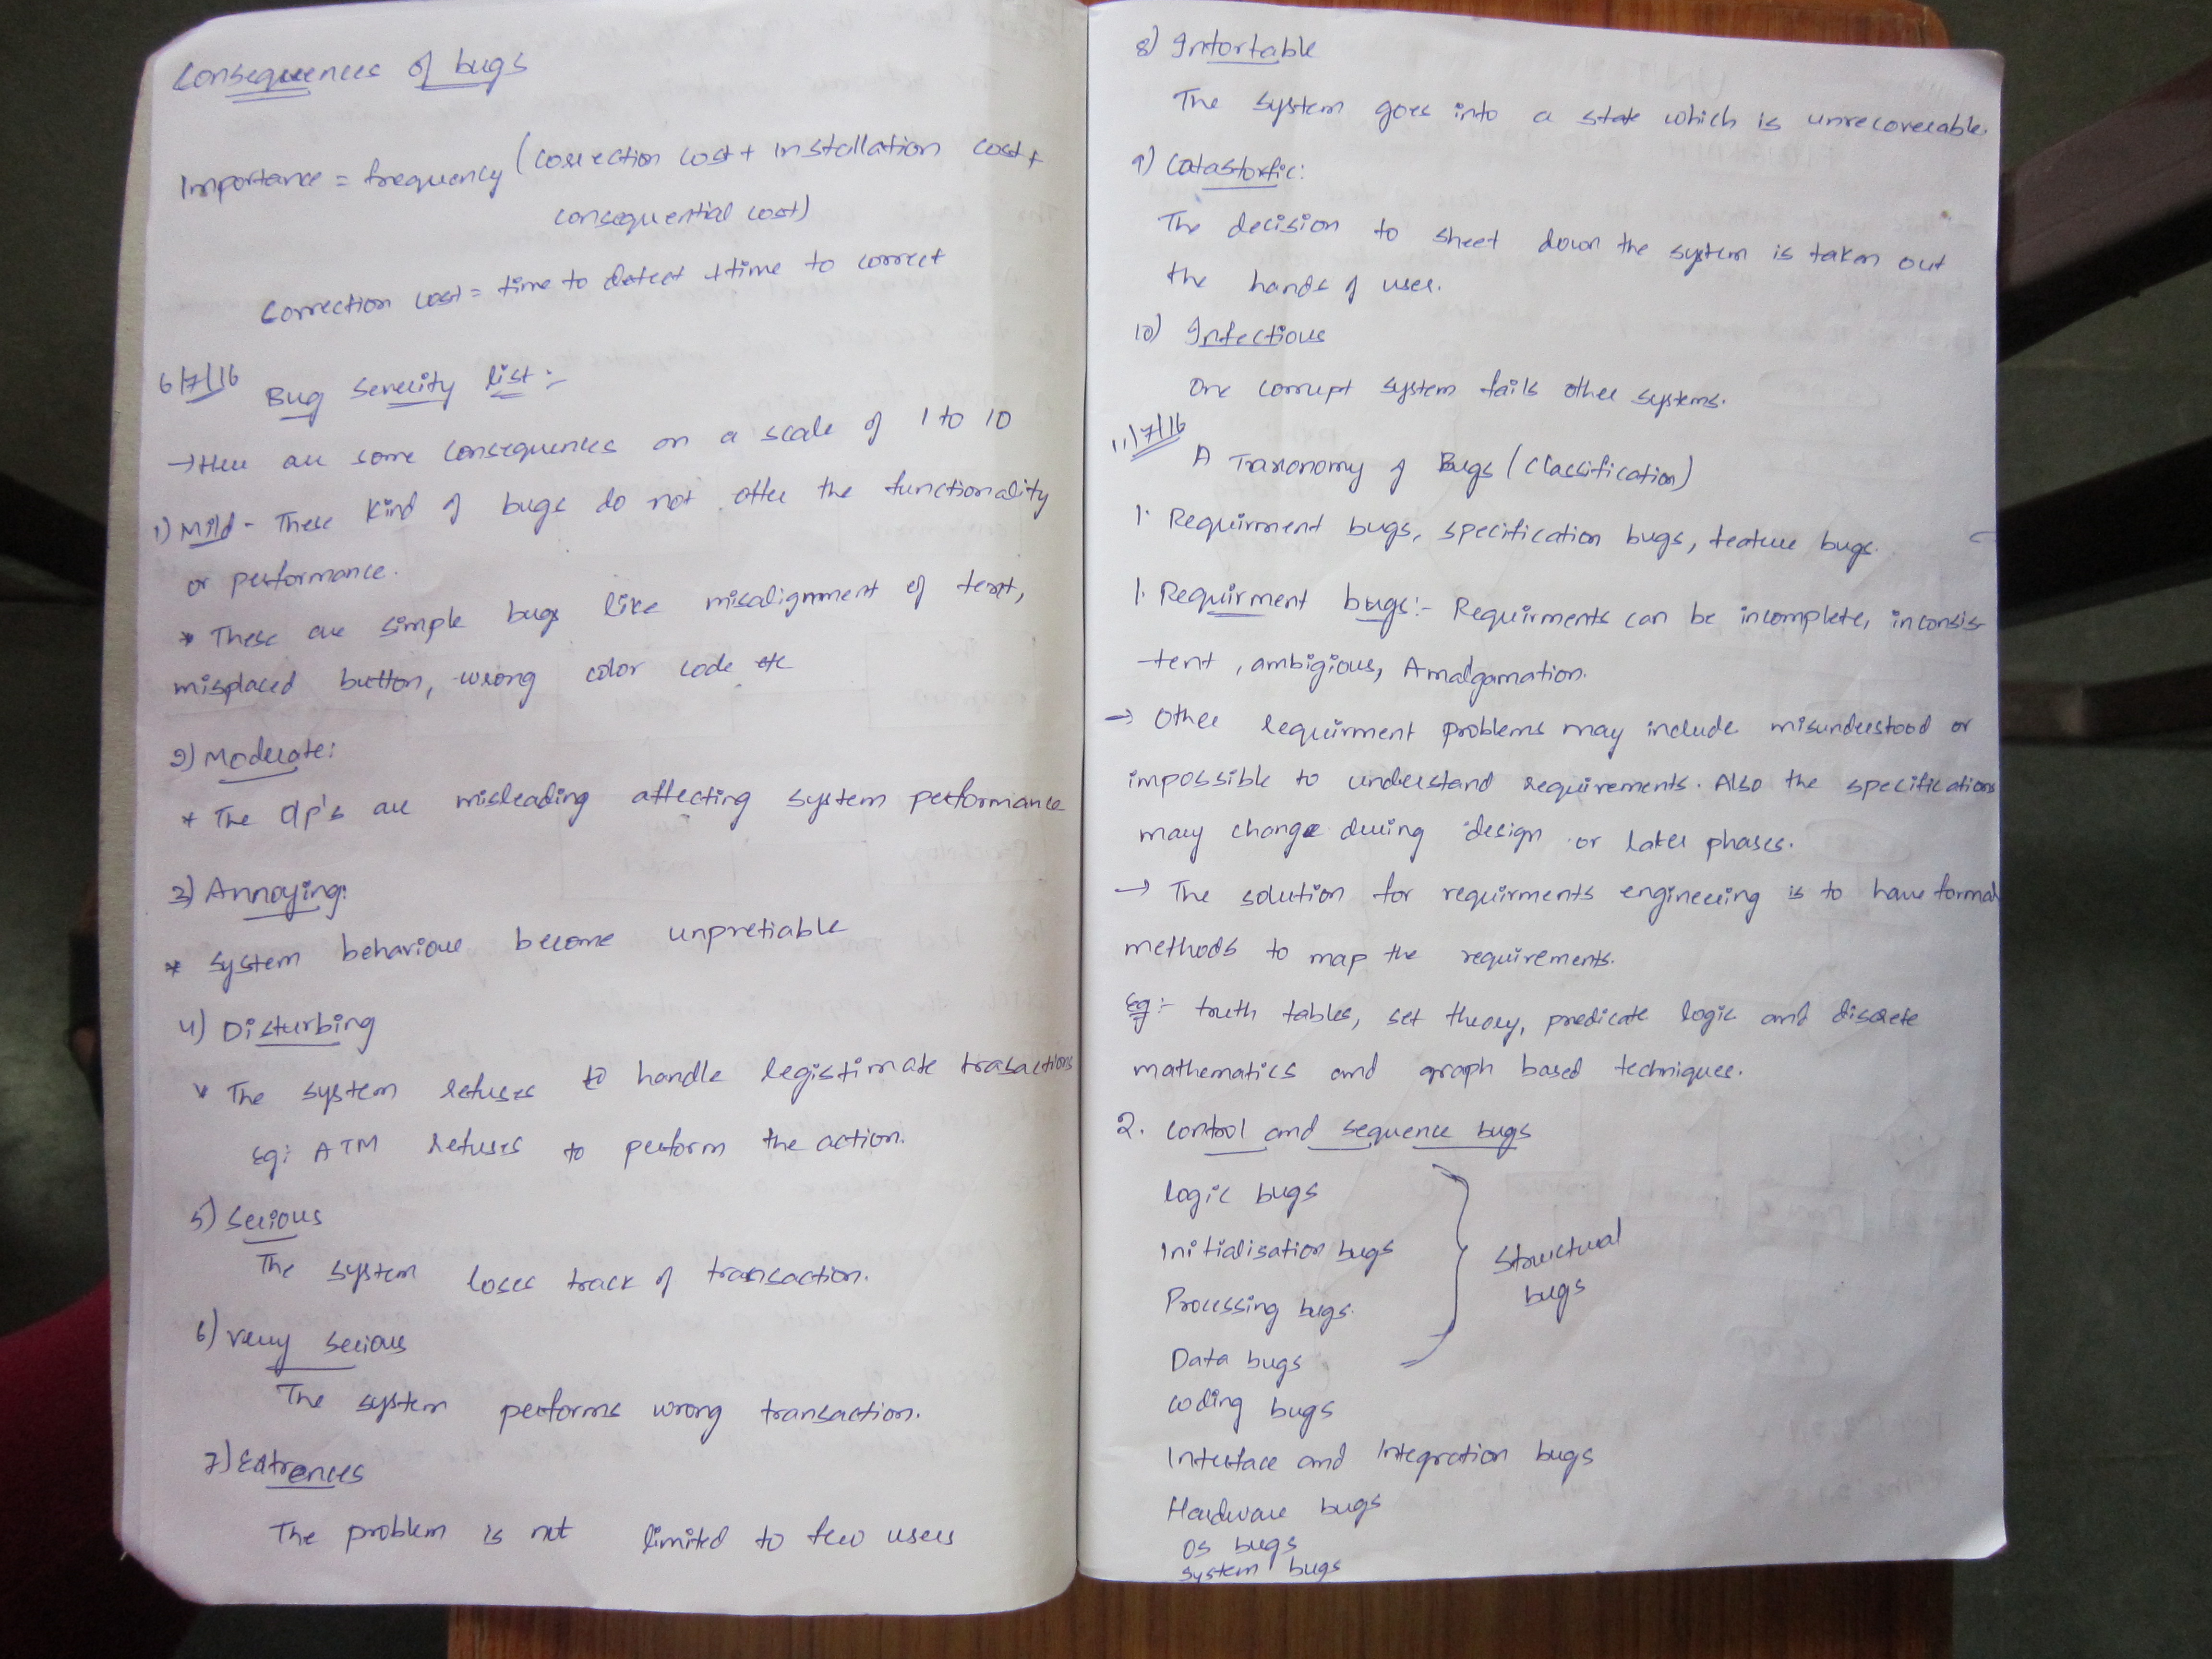 Consequences of bugs
Importance = frequency (correction cost + installation cost +
consequential cost)
Correction cost = time to detect + time to correct
6/7/16 Bug Severity list :-
→ Here are some consequences on a scale of 1 to 10
1) Mild - These kind of bugs do not offer the functionality
or performance.
* These are simple bugs like misalignment of text,
misplaced button, wrong color code etc
2) Moderate:
* The o/p's are misleading affecting system performance
3) Annoying:
* System behaviour become unpretiable
4) Disturbing
* The system refuses to handle legistimate trasactions
eg: ATM refuses to perform the action.
5) Serious
The system loses track of transaction.
6) Very serious
The system performs wrong transaction.
7) Extremes
The problem is not limited to few users
8) Intortable
The system goes into a state which is unrecoverable.
9) Catastorfic:
The decision to sheet down the system is taken out
the hands of user.
10) Infectious
One corrupt system fails other systems.
11/7/16 A Taxonomy of Bugs (Classification)
1. Requirment bugs, specification bugs, feature bugs.
1. Requirment bugs:- Requirments can be incomplete, inconsis-
-tent, ambigious, Amalgamation.
→ Other requirment problems may include misunderstood or
impossible to understand requirements. Also the specifications
may change during design or later phases.
→ The solution for requirments engineering is to have formal
methods to map the requirements.
eg:- truth tables, set theory, predicate logic and discrete
mathematics and graph based techniques.
2. Control and sequence bugs
Logic bugs
Initialisation bugs
Processing bugs.
Structual
bugs
Data bugs
coding bugs
Interface and Integration bugs
Hardware bugs
OS bugs
system bugs